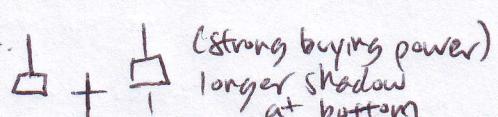 (strong buying power)
longer shadow
at bottom